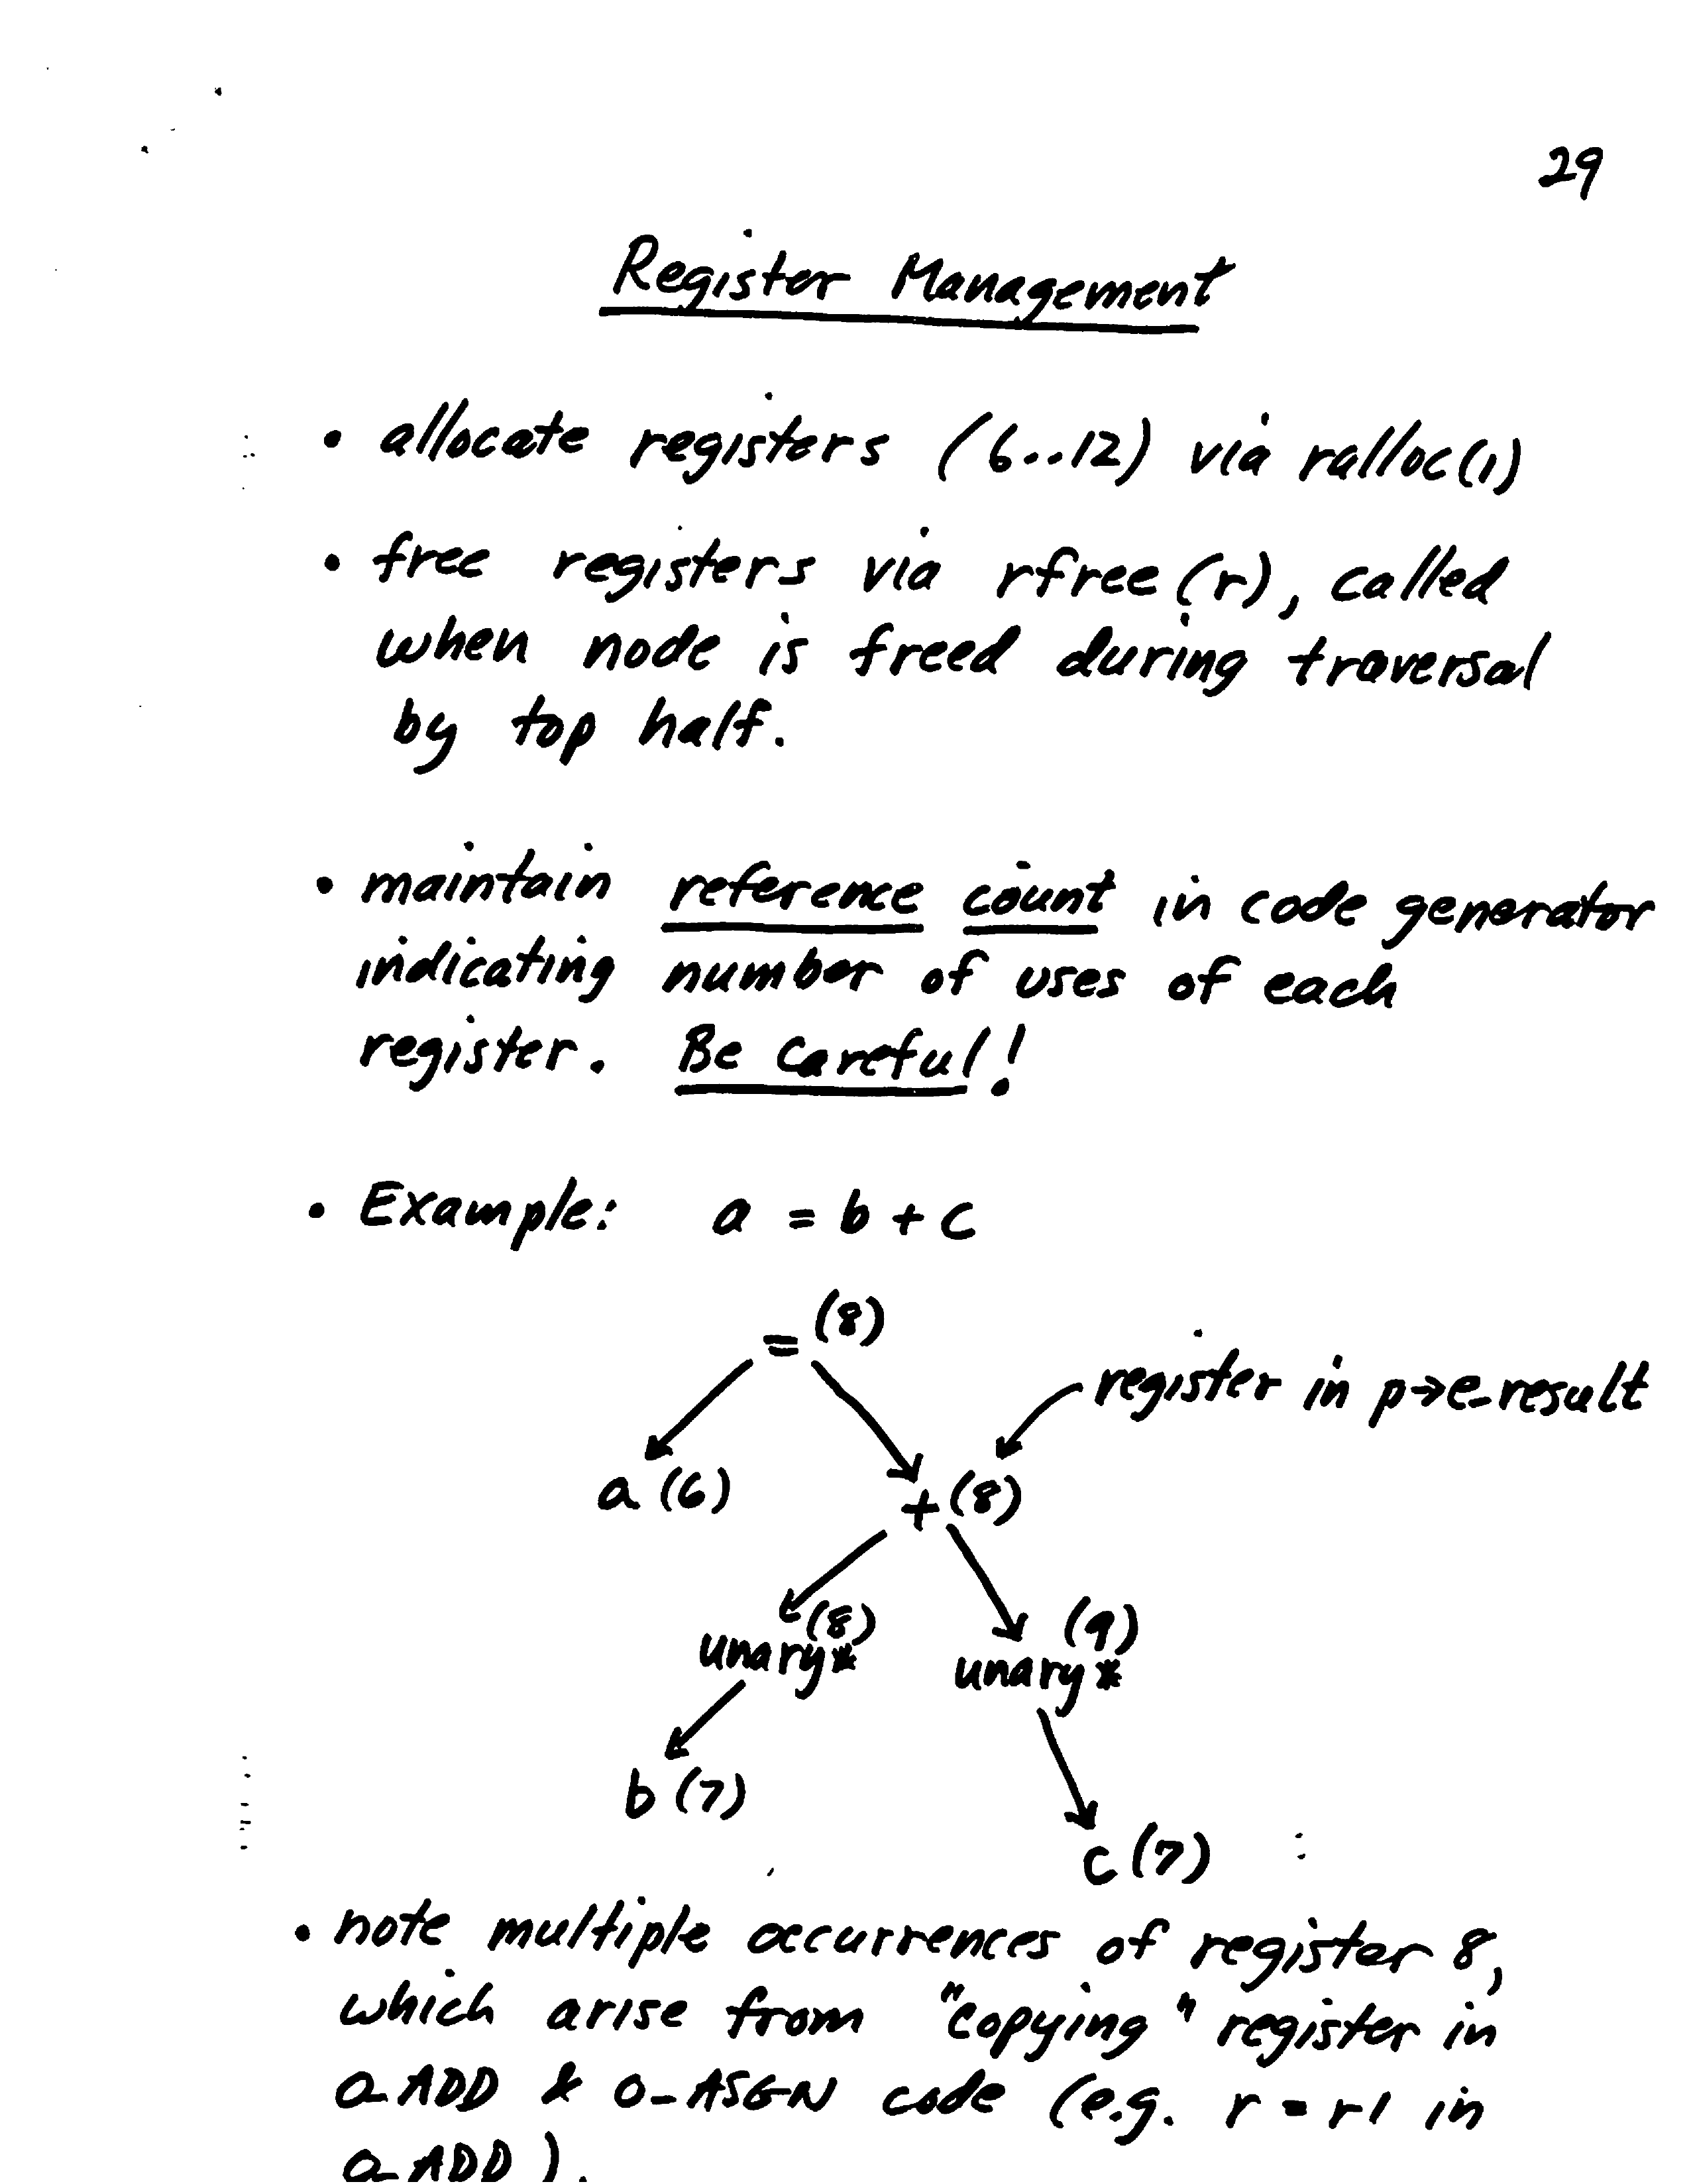 29
Register Management
• allocate registers (6..12) via ralloc(1)
• free registers via rfree(r), called
when node is freed during traversal
by top half.
• maintain reference count in code generator
indicating number of uses of each
register. Be careful!
• Example: a = b + c
= (8)
register in p→e_result
a (6)
+ (8)
(8) (9)
unary* unary*
b (7)
c (7)
• note multiple occurrences of register 8,
which arise from "copying" register in
o_ADD & o_ASGN code (e.g. r = r1 in
o_ADD).